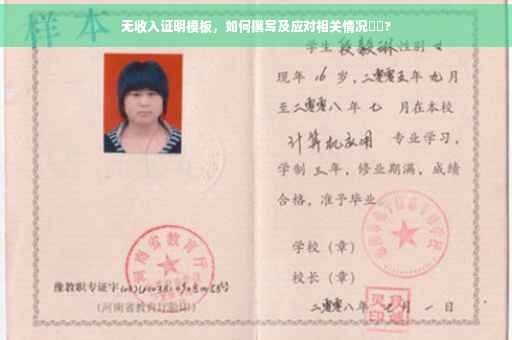 无收入证明模板，如何撰写及应对相关情况？
样本
学生段毅琳性别女
现年16岁，二零零五年九月
至二零零八年七月在本校
计算机应用 专业学习，
学制三年，修业期满，成绩
合格，准予毕业
学校（章）
校长（章）
二零零八年七月一日
河南省教育厅
豫教职专证字
（河南省教育厅验印）